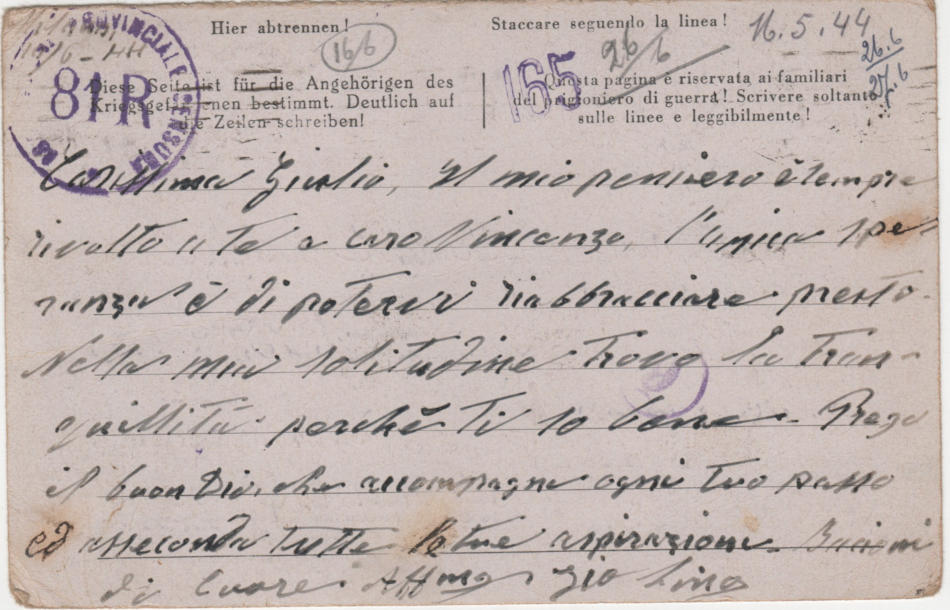 Hier abtrennen!
Staccare seguendo la linea!
16.5.44
166
26/6
26.6
27.6
165
PROVINCIALE CENSURA
81R
Diese Seite ist für die Angehörigen des
Kriegsgefangenen bestimmt. Deutlich auf
die Zeilen schreiben!
Questa pagina è riservata ai familiari
del prigioniero di guerra! Scrivere soltanto
sulle linee e leggibilmente!
Carissima Giulio, Il mio pensiero è sempre
rivolto a te a caro Vincenzo, l'unica spe-
ranza è di potervi riabbracciare presto.
Nella mia solitudine trovo la tran-
quillità perchè ti so bene. Prego
il buon Dio, che accompagna ogni tuo passo
ed asseconda tutte le tue aspirazioni. Bacioni
di cuore. Aff.mo zio Lino